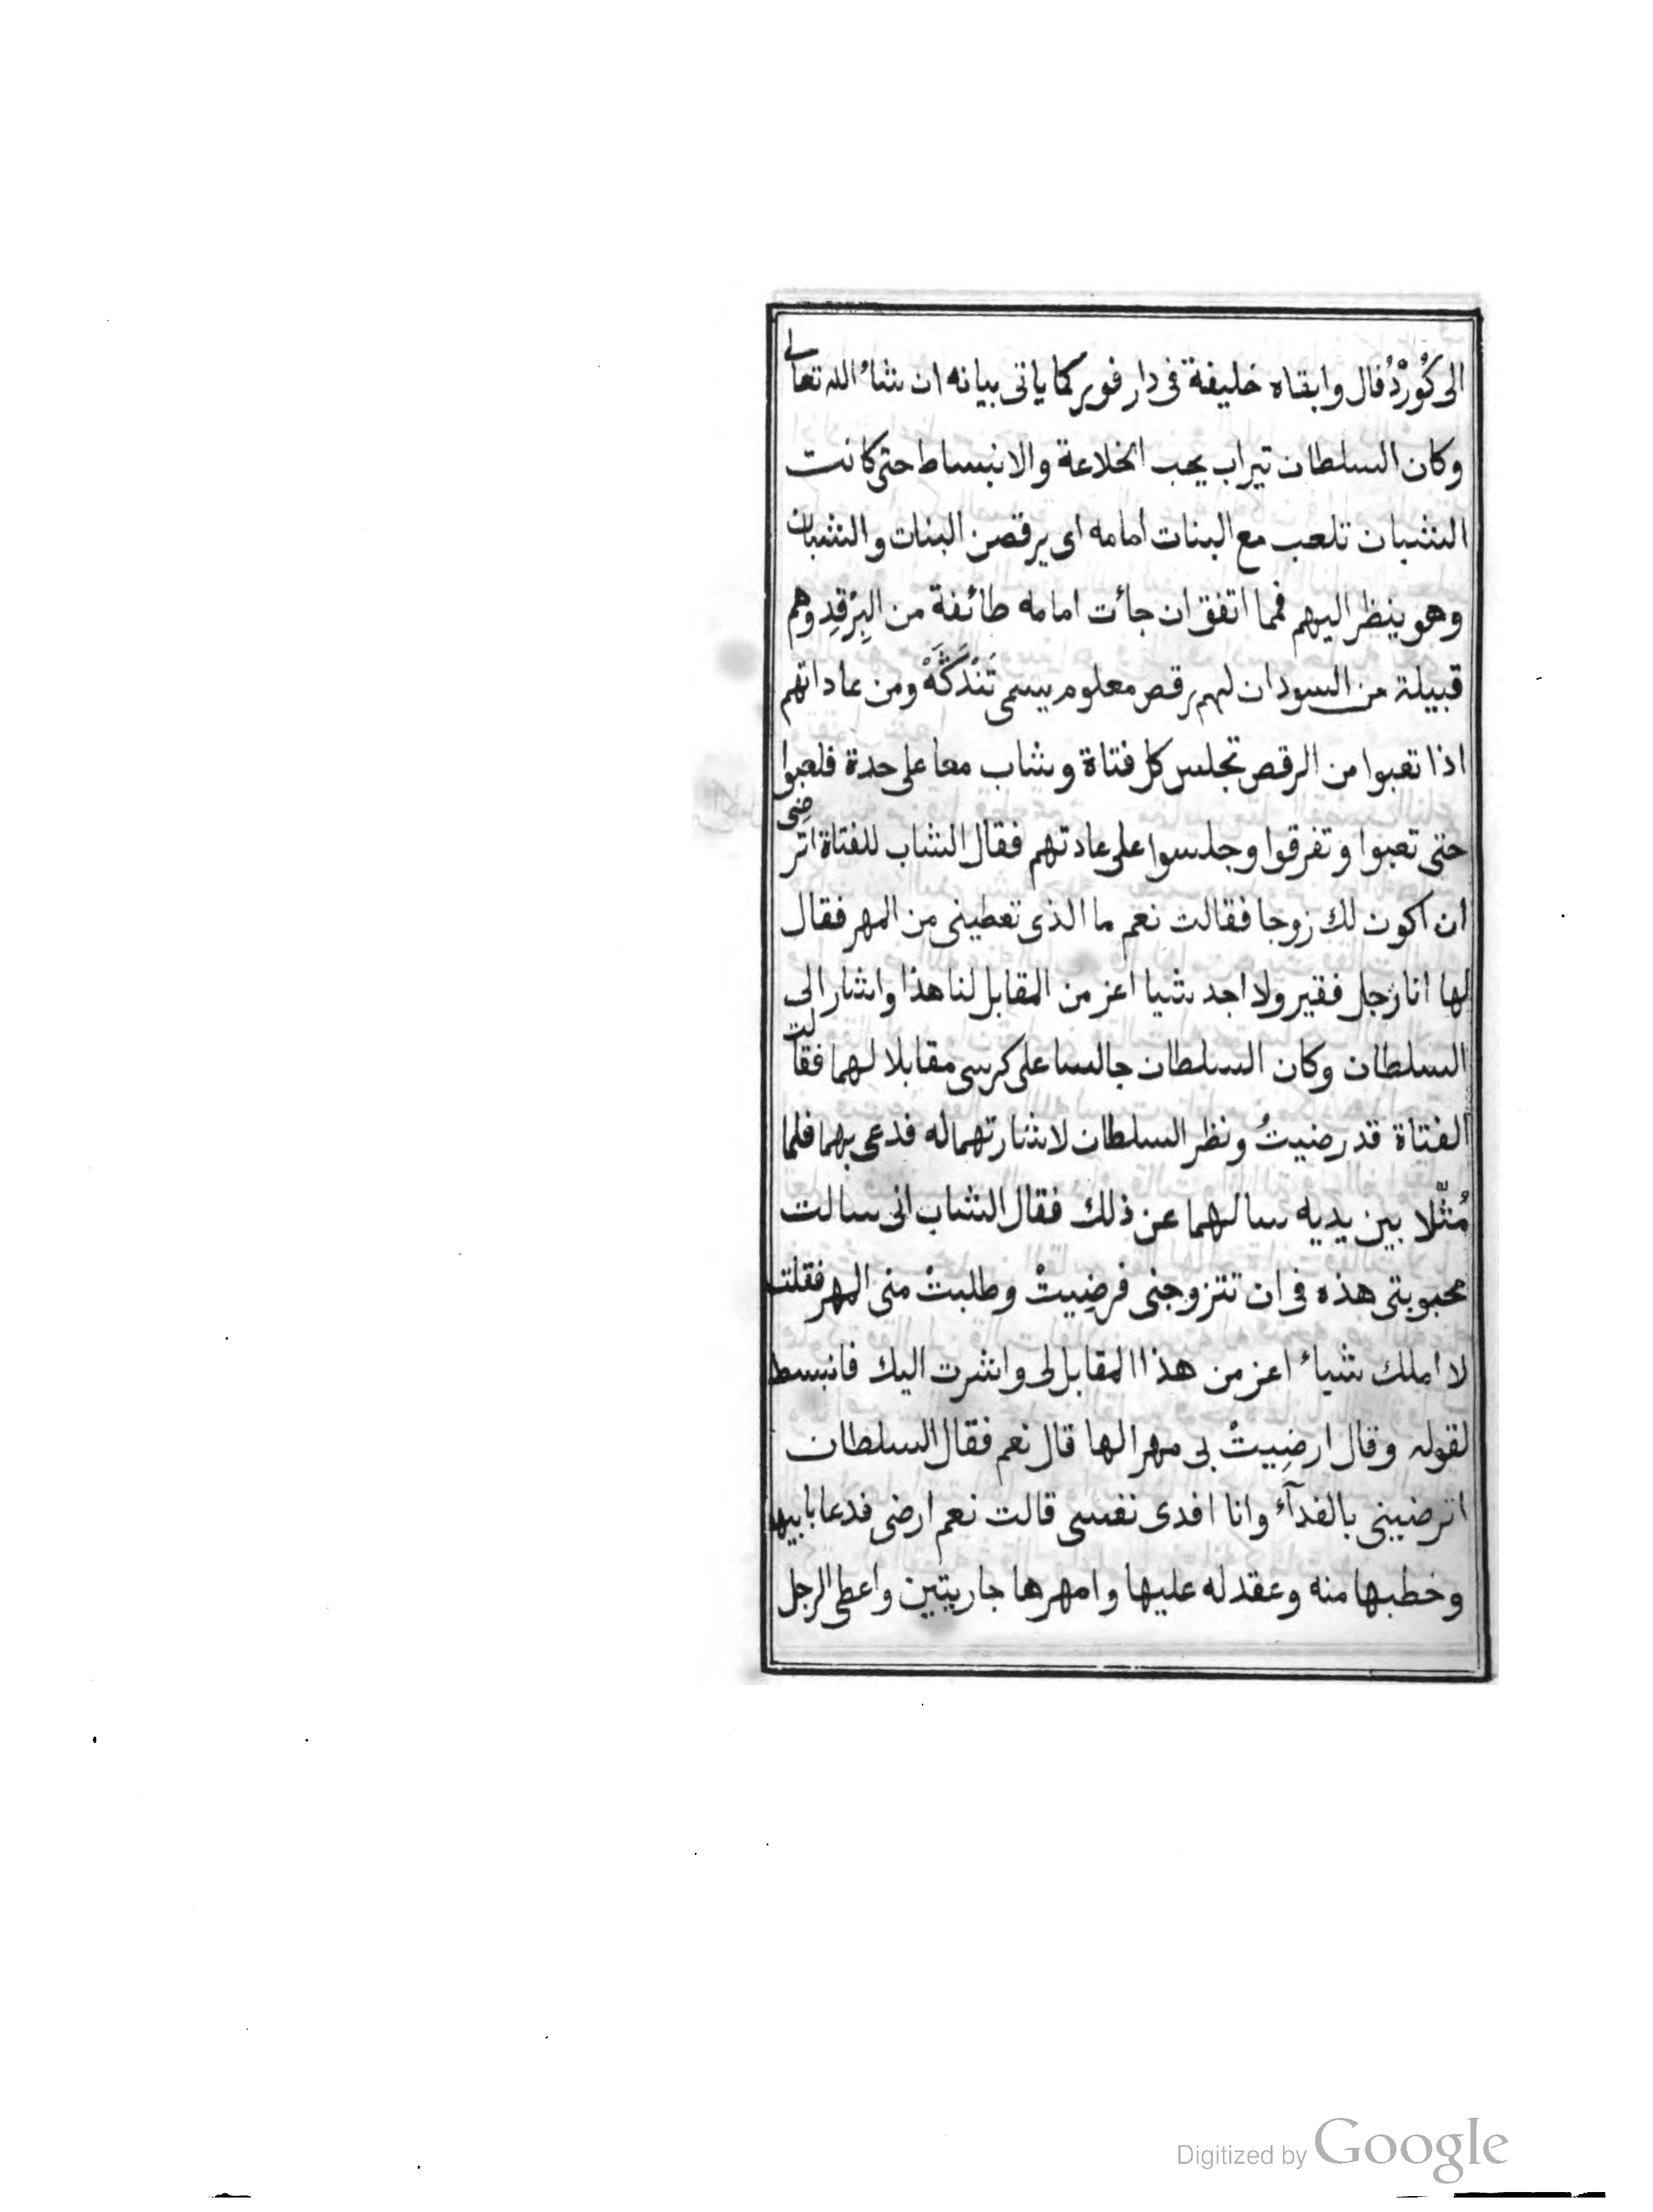 الى كُورْدُفال وابقاه خليفة فى دار فور كما ياتى بيانه ان شاء الله تعالى
وكان السلطان تيراب يحب الخلاعة والانبساط حتى كانت
الشبان تلعب مع البنات امامه اى يرقصن البنات والشبان
وهو ينظر اليهم فمما اتفق ان جائت امامه طائفة من البِرْقِدِ وهم
قبيلة من السودان لهم رقص معلوم يسمى تَنْدَنْكَهْ ومن عاداتهم
اذا تعبوا من الرقص تجلس كل فتاة وشاب معا على حدة فلعبوا
حتى تعبوا وتفرقوا وجلسوا على عادتهم فقال الشاب للفتاة اترضى
ان اكون لك زوجا فقالت نعم ما الذى تعطينى من المهر فقال
لها انا رجل فقير ولا اجد شيا اعز من المقابل لنا هذا واشار الى
السلطان وكان السلطان جالسا على كرسى مقابلا لهما فقالت
الفتاة قد رضيتُ ونظر السلطان لاشارتهما له فدعى بهما فلما
مُثّلا بين يديه سالهما عن ذلك فقال الشاب انى سالت
محبوبتى هذه فى ان تتزوجنى فرضِيتْ وطلبتْ منى المهر فقلت
لا املك شياء اعز من هذا المقابل لى واشرت اليك فانبسط
لقوله وقال ارضِيتْ بى مهرا لها قال نعم فقال السلطان
اترضينى بالفدآء وانا افدى نفسى قالت نعم ارضى فدعا بابيها
وخطبها منه وعقد له عليها وامهرها جاريتين واعطى الرجل
Digitized by Google